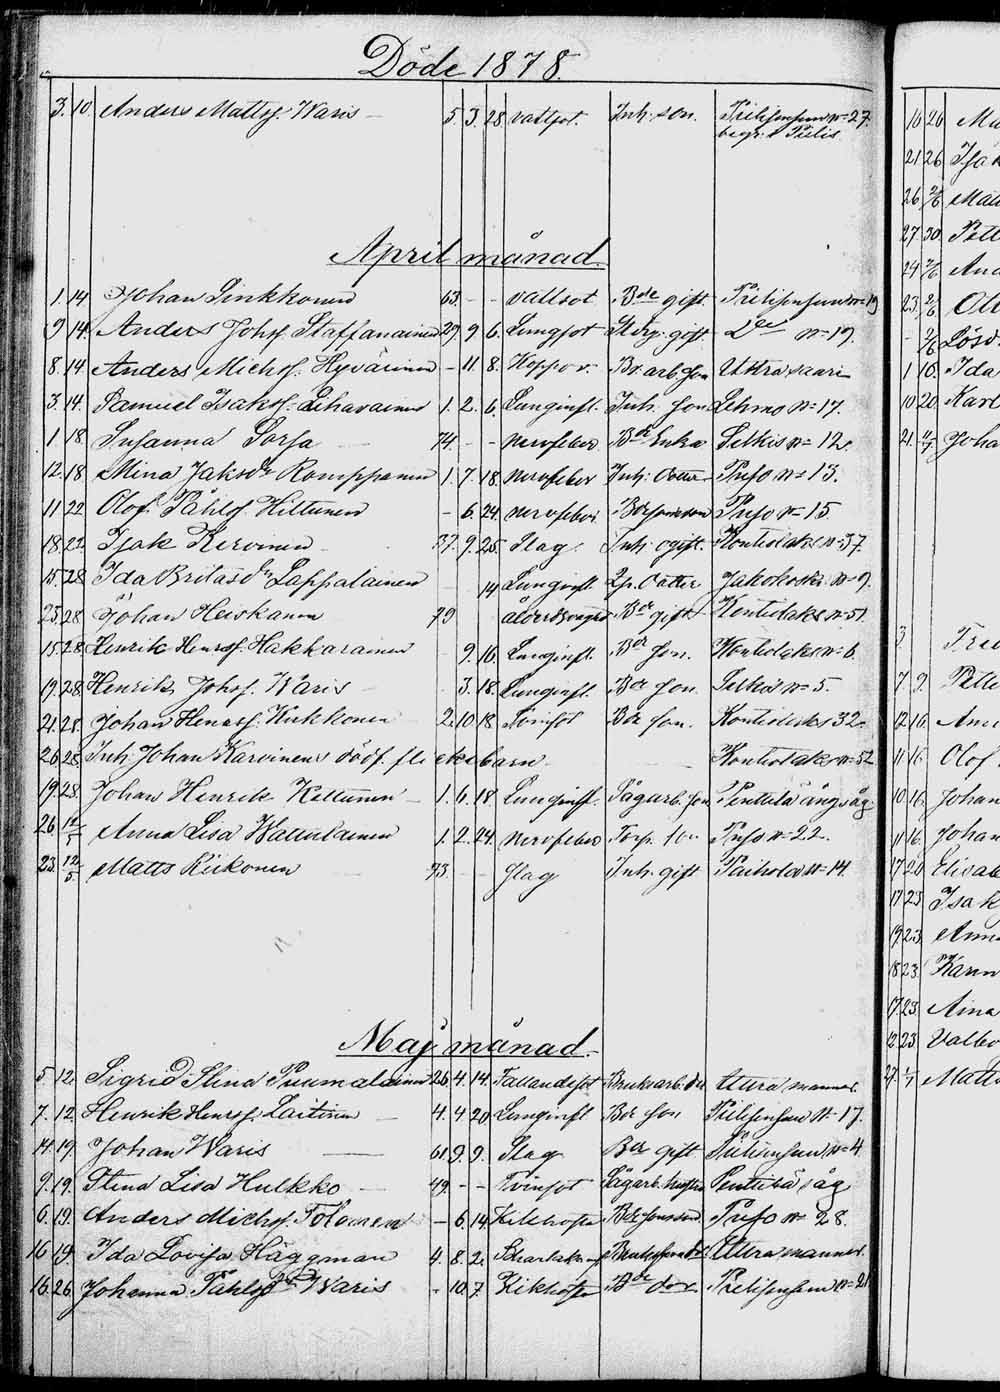 Döde 1878.
3. 10. Anders Mattsf. Waris 5. 3. 28. vattsot. Inh. son. Pielisensuu N=27.
begr. i Pielis
April månad.
1. 14. Johan Sinkkonen 63. - - vattsot Bde gift Pielisensuu N=19
9 14. Anders Johsf. Staffanainen 29. 9 6. Lungsot gift. Do N=19.
8. 14. Anders Michsf. Hyvärinen - 11. 8. Br. arb. son Uttra saari
3. 14. Samuel Isaksf. Lehvainen 1. 2. 6. Lunginfl. Inh. son Lehmo N=17.
1. 18. Susanna Sorsa 74. - - nervfeber Bde Enka Selkis N=12.
12. 18 Mina Jaksdr Romppanen 1. 7. 18. nervfeber Inh. dotter Puso N=13.
11 22. Olof Påhlsf. Hiltunen - 6. 24. nervfeber. Puso N=15.
18. 22. Isak Kervinen 37. 9. 25. Slag. Inh. ogift. Kontiolaks N=37.
15. 28. Ida Britasdr Lappalainen 14 Lunginfl. dotter Jakokoski N=9.
25. 28 Johan Heiskanen 79 Bde gift Kontiolaks N=51.
15. 28. Henrik Henrsf. Hakkarainen 9. 16. Lunginfl. Bde son. Kontiolaks N=6.
19. 28. Henrik Johsf. Waris 3. 18. Lunginfl. Bde son. Selkis N=5.
21. 28. Johan Henrsf. Kukkonen 2. 10. 18 Tvinsot Bde son. Kontiolaks 32.
26. 28. Inh. Johan Karvinens dödf. flickebarn Kontiolaks N=52
19. 28. Johan Henrik Kettunen 1. 6. 18 Lunginfl. Sågarb. son Pentilä ångsåg
26. 12/5 Anna Lisa Watulainen 1. 2. 24. nervfeber Torp. Puso N=22.
23. 12/5 Matts Riikonen 73. - - slag Inh. gift Paihola N=14.
Maj månad.
5. 12. Sigrid Stina Puumalainen 26. 4. 14. Fallandesot Bruksarb. Uttra manner
7. 12. Henrik Henrsf. Laitinen 4. 4 20. Lunginfl. Bde son Pielisensuu N=17.
14. 19. Johan Waris 61. 9. 9. Slag Bde gift Pielisensuu N=4
9. 19. Stina Lisa Hulkko 49. - - Tvinsot Sågarb. hustru Pentilä såg
6. 19. Anders Michsf. Tolonen - 6. 14. Kikhosta Puso N=28.
16 19. Ida Lovisa Häggman 4. 8. 2. Uttra manner.
16. 26. Johanna Påhlsdr Waris - 10. 7. Kikhosta Bde Pielisensuu N=21
16 26
21 26
26 2/6
27 30.
24 2/6
23. 2/6
- 2/6
1 16. Ida
10 20. Karl
21.
3
7 9.
12 16.
11 16. Olof
10 16. Johan
11 16. Johan
17 20
17 23 Isak
19 23.
18 23. Karin
17. 23. Aina
12 23
27. Matts